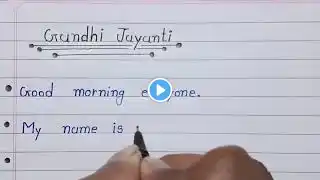 Gandhi Jayanti
Good morning
My name is